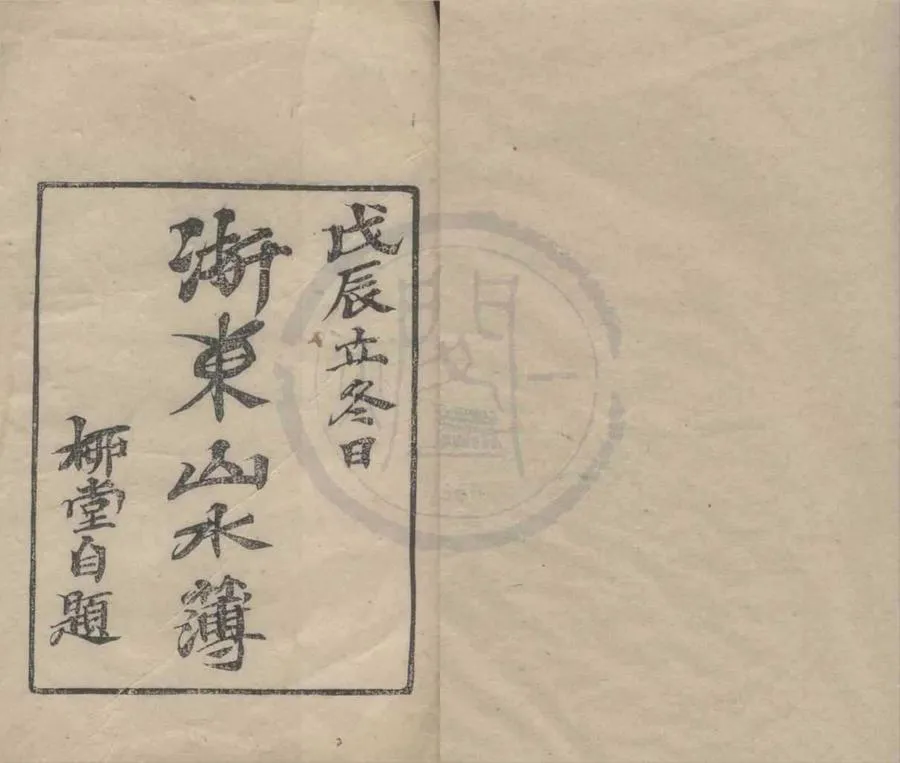 戊辰立冬日
浙東山水簿
桺堂自題